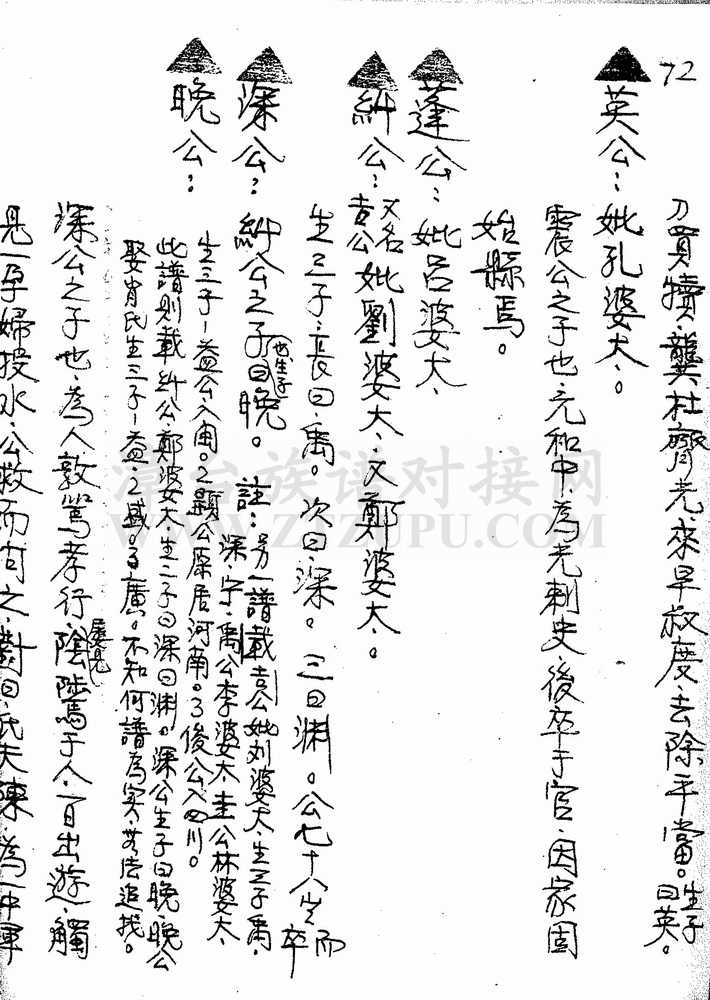 72
刀買犢、龔杜齊光、來早救度、去除平當。生子曰英。
英公：妣孔婆太、。
震公之子也、元和中、為光刺史、後卒于官、因家固
始縣焉。
蓬公：妣呂婆太、
糾公：又名吉公妣劉婆太、又鄭婆太、。
生三子、長曰、禹。次曰、深。三曰淵。公七十八岁而卒
深公：糾公之子也生子曰晚。註：另一譜載吉公妣刘婆太、生三子禹、
深、宇、禹公李婆太、圭公林婆太、
生三子－益公入闽。2顯公原居河南。3俊公入四川。
此譜則載糾公、鄭婆太、生二子曰深曰渊。深公生子曰晚、晚公
娶肖氏生三子－益、2盛。3廣。不知何譜為实、若法追找。
晚公：
深公之子也、為人敦篤孝行、屡見陰陟焉于人、一日出遊、觸
見一孕婦投水、公救而问之、對曰、氏夫陳、為一中軍
清台族谱对接网
WWW.ZTZUPU.COM